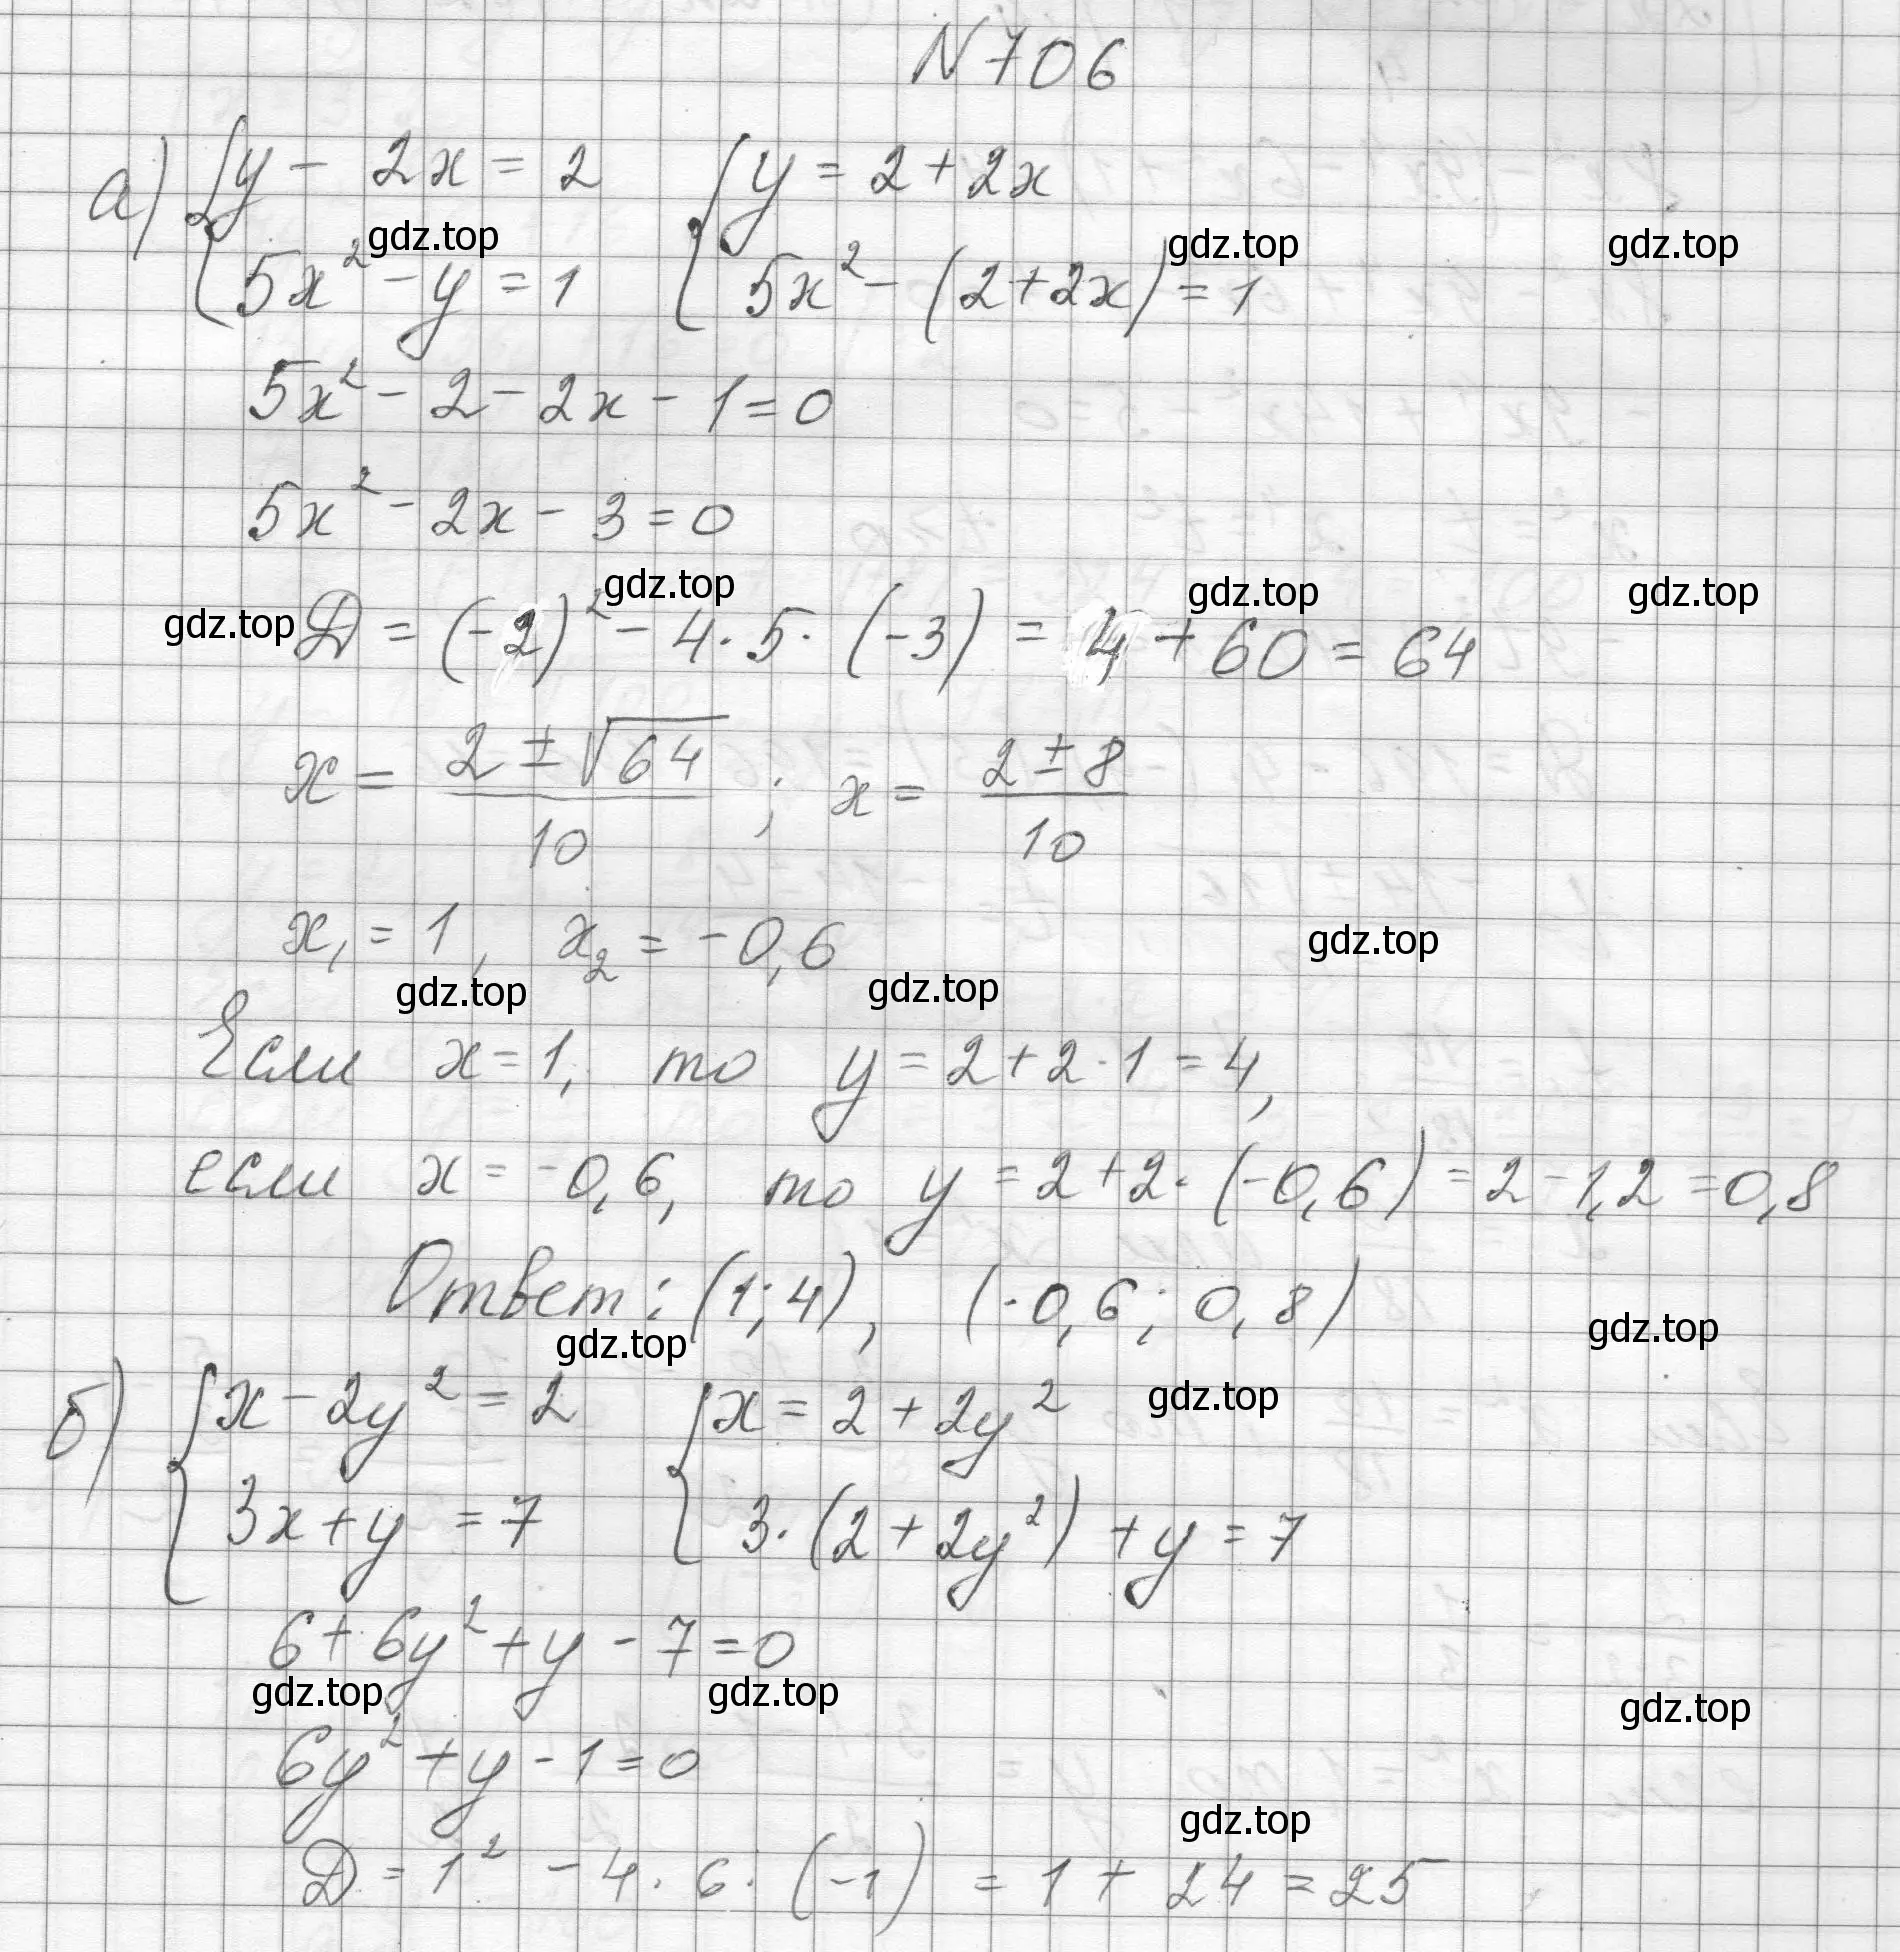 N706
а) { y - 2x = 2    { y = 2 + 2x
gdz.top gdz.top gdz.top
{ 5x² - y = 1    { 5x² - (2 + 2x) = 1
5x² - 2 - 2x - 1 = 0
5x² - 2x - 3 = 0
gdz.top gdz.top gdz.top gdz.top
D = (-2)² - 4 · 5 · (-3) = 4 + 60 = 64
x = (2 ± √64)/10 ; x = (2 ± 8)/10
x₁ = 1, x₂ = -0,6
gdz.top gdz.top gdz.top
Если x = 1, то y = 2 + 2 · 1 = 4,
если x = -0,6, то y = 2 + 2 · (-0,6) = 2 - 1,2 = 0,8
Ответ: (1; 4), (-0,6; 0,8)
gdz.top gdz.top
б) { x - 2y² = 2    { x = 2 + 2y²
gdz.top
{ 3x + y = 7    { 3 · (2 + 2y²) + y = 7
6 + 6y² + y - 7 = 0
gdz.top gdz.top gdz.top
6y² + y - 1 = 0
gdz.top
D = 1² - 4 · 6 · (-1) = 1 + 24 = 25